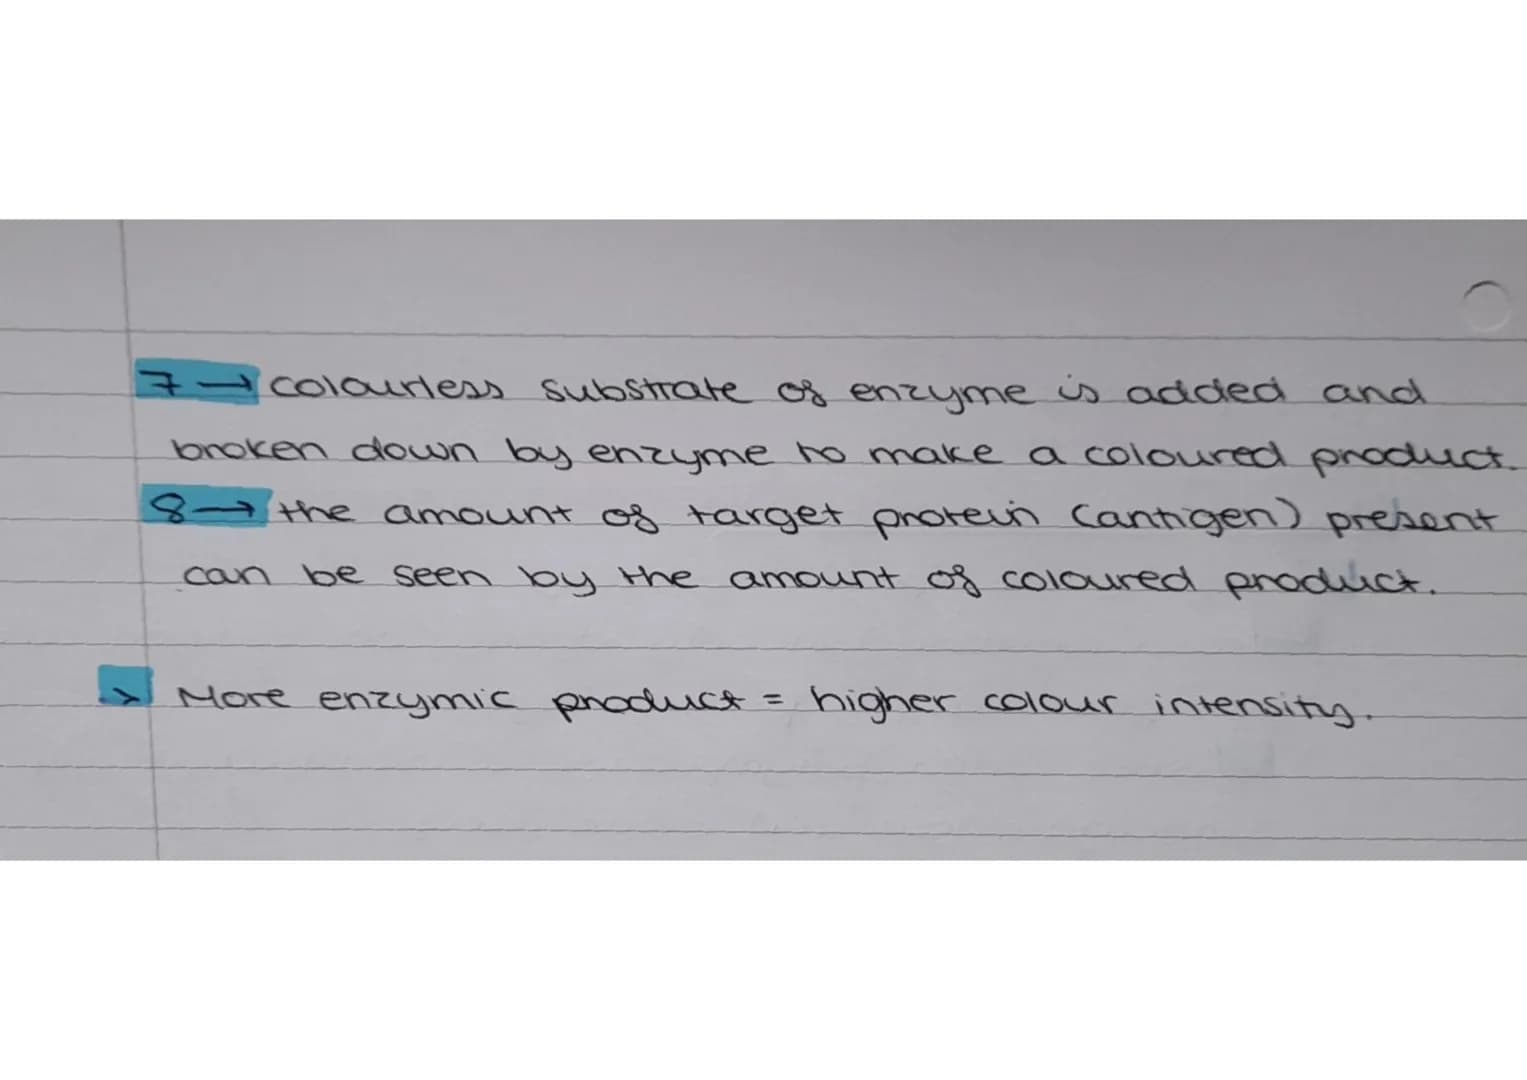 7 → colourless substrate of enzyme is added and
broken down by enzyme to make a coloured product.
8 → the amount of target protein (antigen) present
can be seen by the amount of coloured product.
> More enzymic product = higher colour intensity.